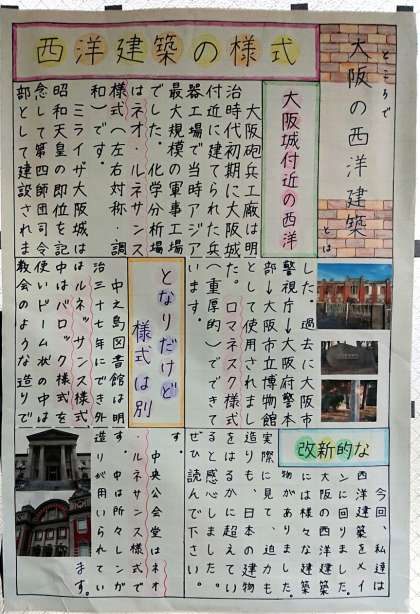 西洋建築の様式
ところで
大阪の西洋建築
とは
改新的な
今回、私達は
西洋建築をメイ
ンに回りました。
大阪の西洋建築
には様々な建築
物がありました。
実際に見て、迫力も
造りも、日本の建物
をはるかに超えてい
ると感心しました。
ぜひ読んで下さい。
大阪城付近の西洋
大阪砲兵工廠は明
治時代初期に大阪城
付近に建てられた兵
器工場で当時アジア
最大規模の軍事工場
でした。化学分析場
はネオ・ルネサンス
様式(左右対称・調
和)です。
ミライザ大阪城は
昭和天皇の即位を記
念して第四師団司令
部として建設されま
した。過去に大阪市
警視庁→大阪府警本
部→大阪市立博物館
として使用されまし
た。ロマネスク様式
(重厚的)でできて
います。
となりだけど
様式は別
中之島図書館は明
治三十七年にでき外
はルネッサンス様式
中はバロック様式を
使いドーム状の中は
教会のような造りで
す。
中央公会堂はネオ
・ルネサンス様式で
す。中は所々レンガ
造りが用いられてい
ます。